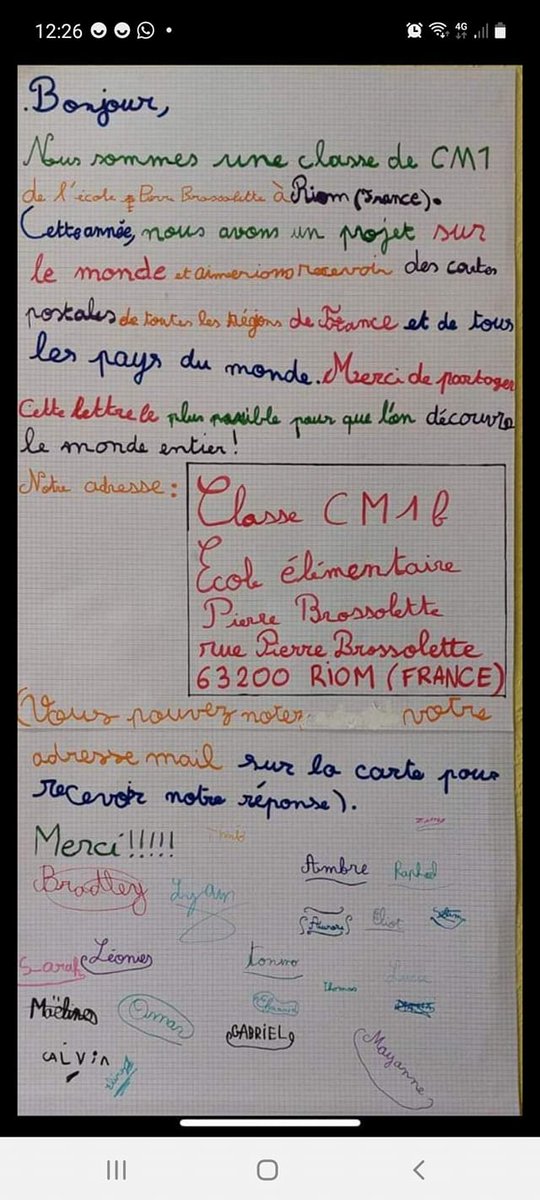 12:26
4G
.Bonjour,
Nous sommes une classe de CM1
de l'école Pierre Brossolette à Riom (France).
Cette année, nous avons un projet sur
le monde et aimerions recevoir des cartes
postales de toutes les régions de France et de tous
les pays du monde. Merci de partager
cette lettre le plus possible pour que l'on découvre
le monde entier!
Notre adresse:
Classe CM1b
Ecole élémentaire
Pierre Brossolette
rue Pierre Brossolette
63200 RIOM (FRANCE)
(Vous pouvez noter votre
adresse mail sur la carte pour
recevoir notre réponse).
Merci!!!!!
Ambre Raphael
Bradley Lyam
Aurore Eliot Selim
Sarah Léonies Tonino
Thomas Luca
Maëlines Omar
GABRIEL
CALVIN Mayanne